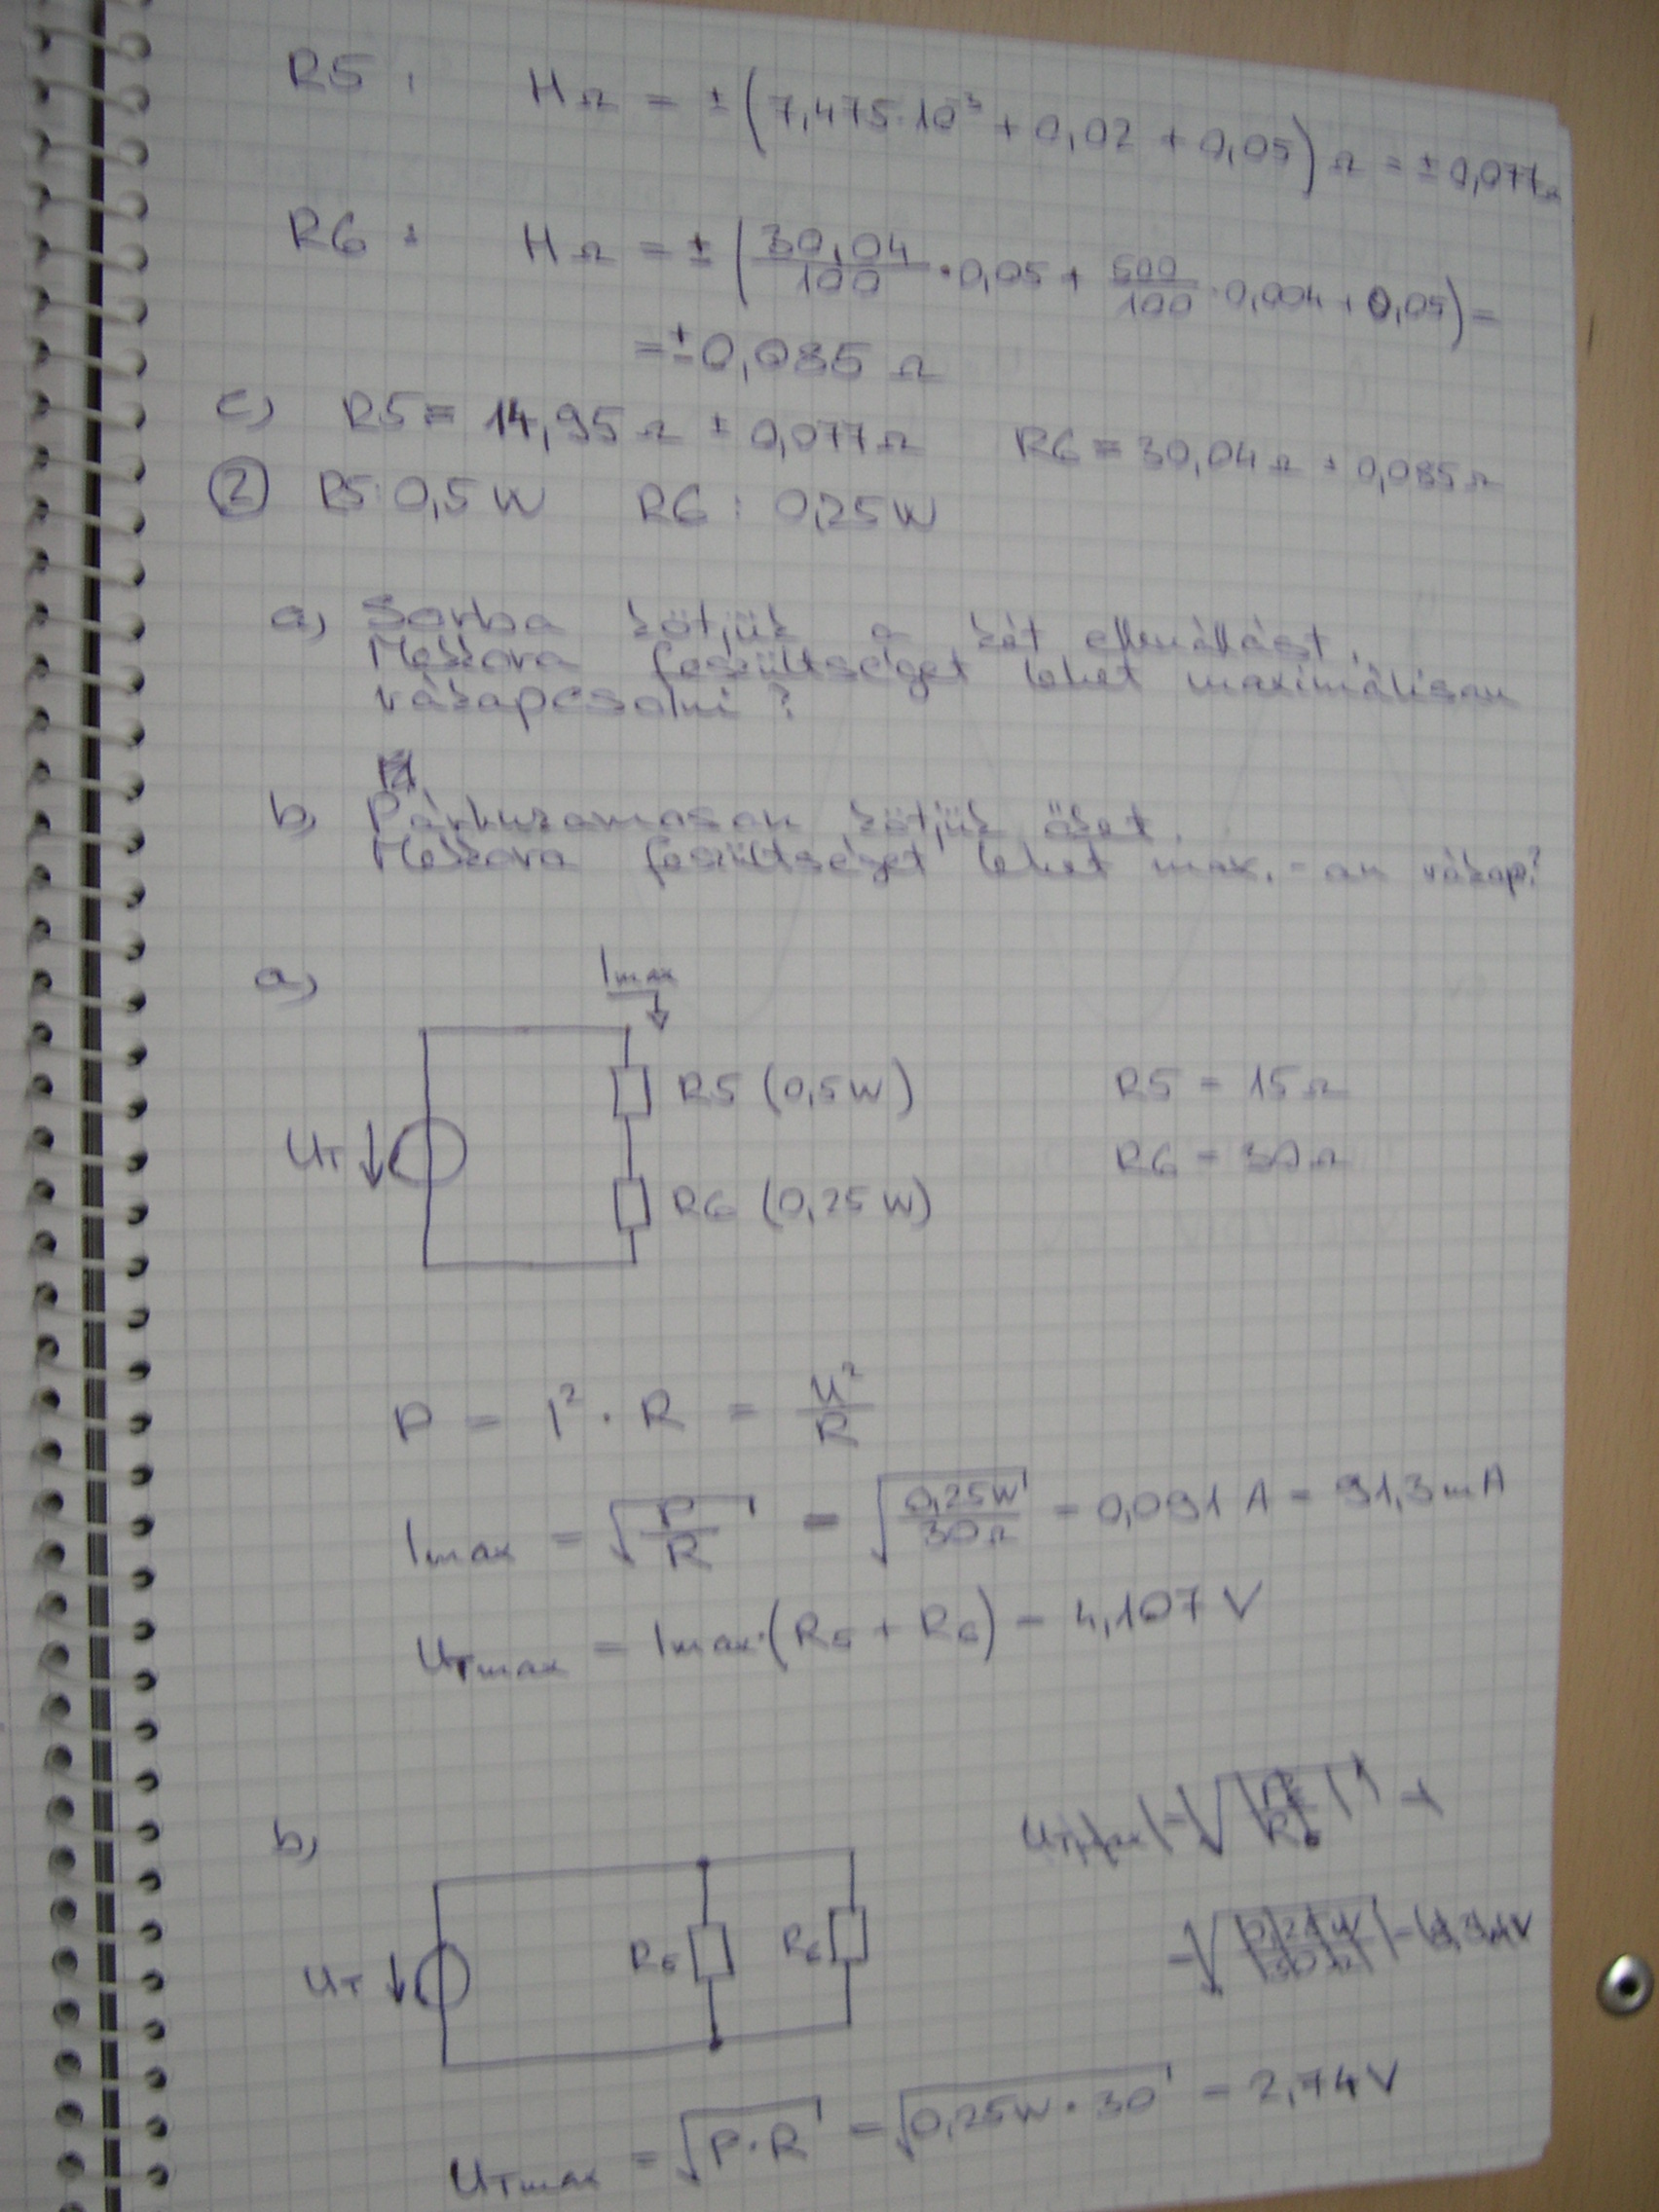 R5 : HΩ = ± (7,475·10⁻³ + 0,02 + 0,05) Ω = ± 0,077Ω
R6 : HΩ = ± (30,04/100 · 0,05 + 500/100 · 0,004 + 0,05) =
= ± 0,085 Ω
c) R5 = 14,95 Ω ± 0,077 Ω R6 = 30,04 Ω ± 0,085 Ω
② R5: 0,5 W R6 : 0,25 W
a) Sorba kötjük a két ellenállást.
Mekkora feszültséget lehet maximálisan
rákapcsolni ?
b) Párhuzamosan kötjük őket.
Mekkora feszültséget lehet max.-an rákap?
a) Imax
R5 (0,5 W) R5 = 15 Ω
UT R6 = 30 Ω
R6 (0,25 W)
P = I² · R = U²/R
Imax = √(P/R) = √(0,25W/30Ω) = 0,091 A = 91,3 mA
UTmax = Imax·(R5 + R6) = 4,107 V
b)
UT R5 R6
UTmax = √(P·R) = √(0,25W · 30) = 2,74 V